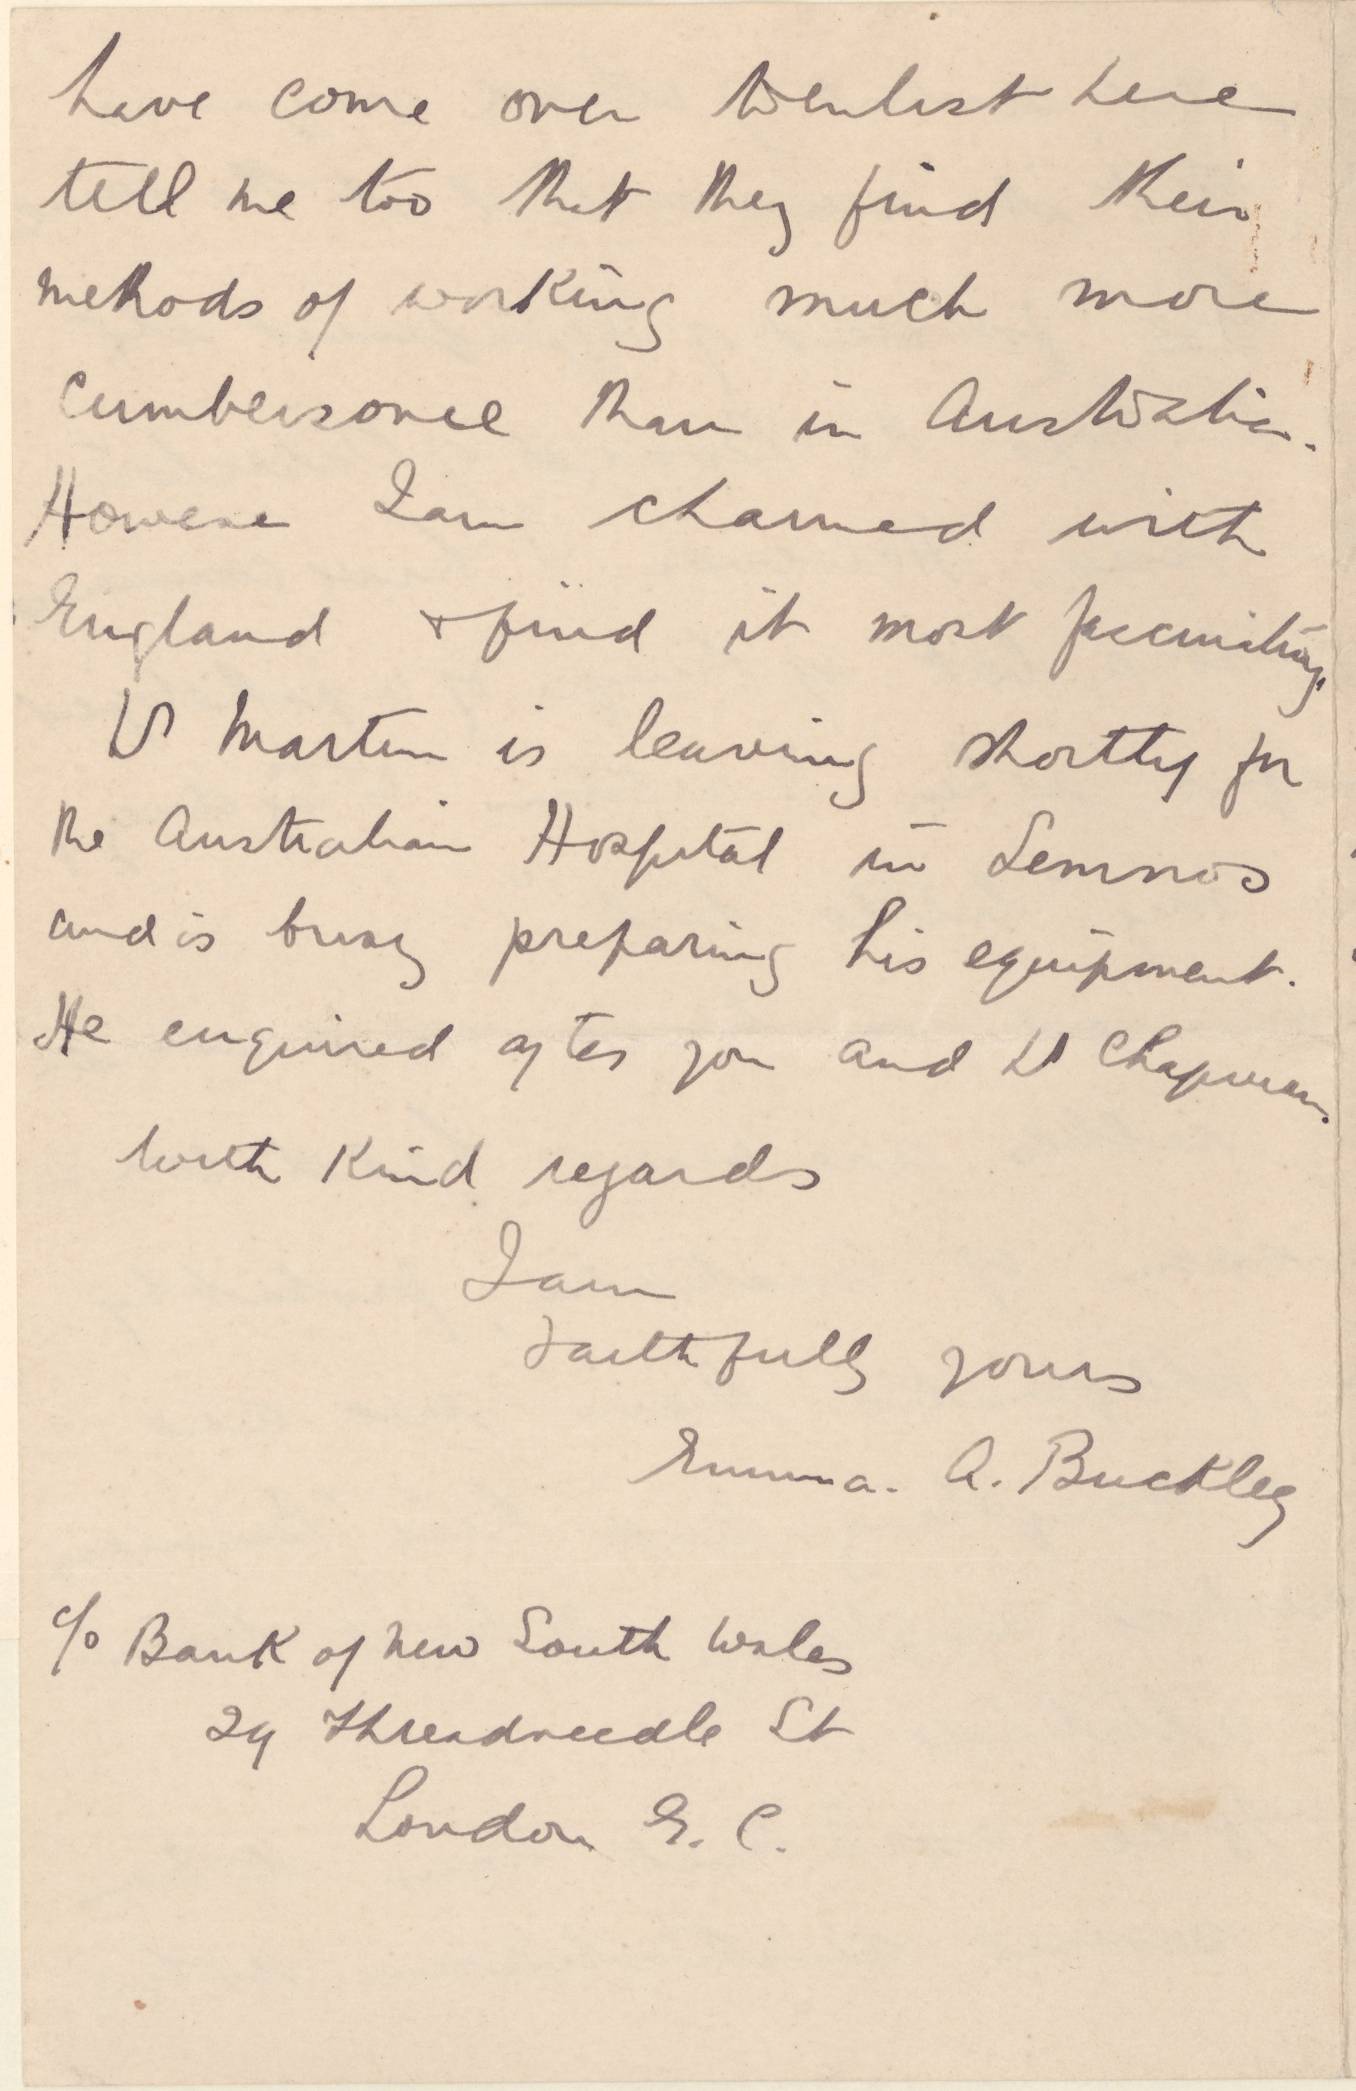 have come over to enlist here
tell me too that they find their
methods of working much more
cumbersome than in Australia.
However I am charmed with
England & find it most fascinating.
Dr Martin is leaving shortly for
the Australian Hospital in Lemnos
and is busy preparing his equipment.
He enquired after you and Dr Chapman.
With kind regards
I am
Faithfully yours
Emma. A. Buckley
c/o Bank of New South Wales
29 Threadneedle St
London E. C.